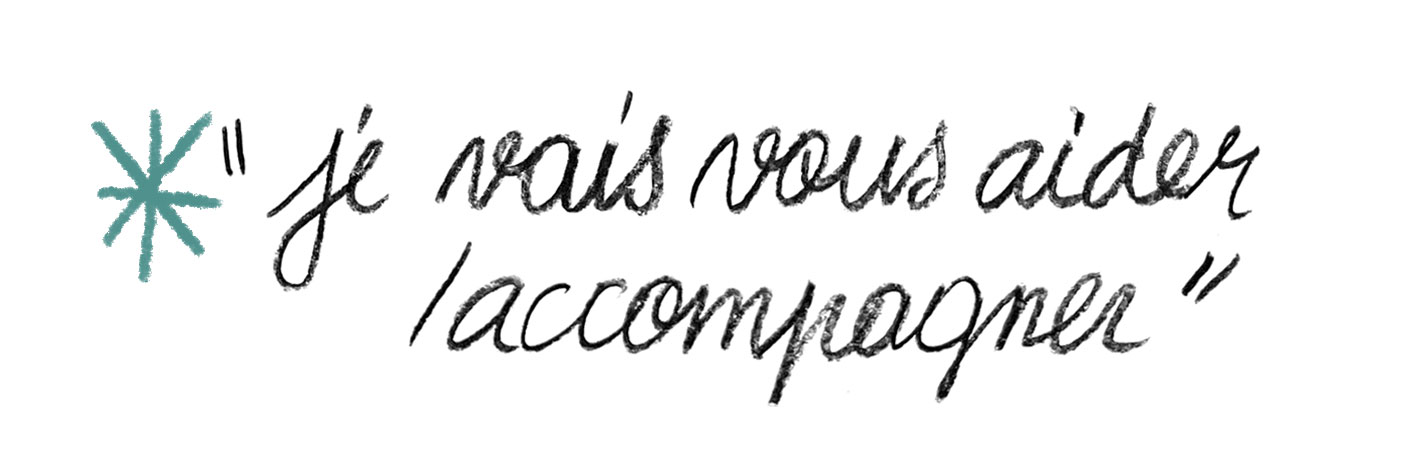 " je vais vous aider
/accompagner "